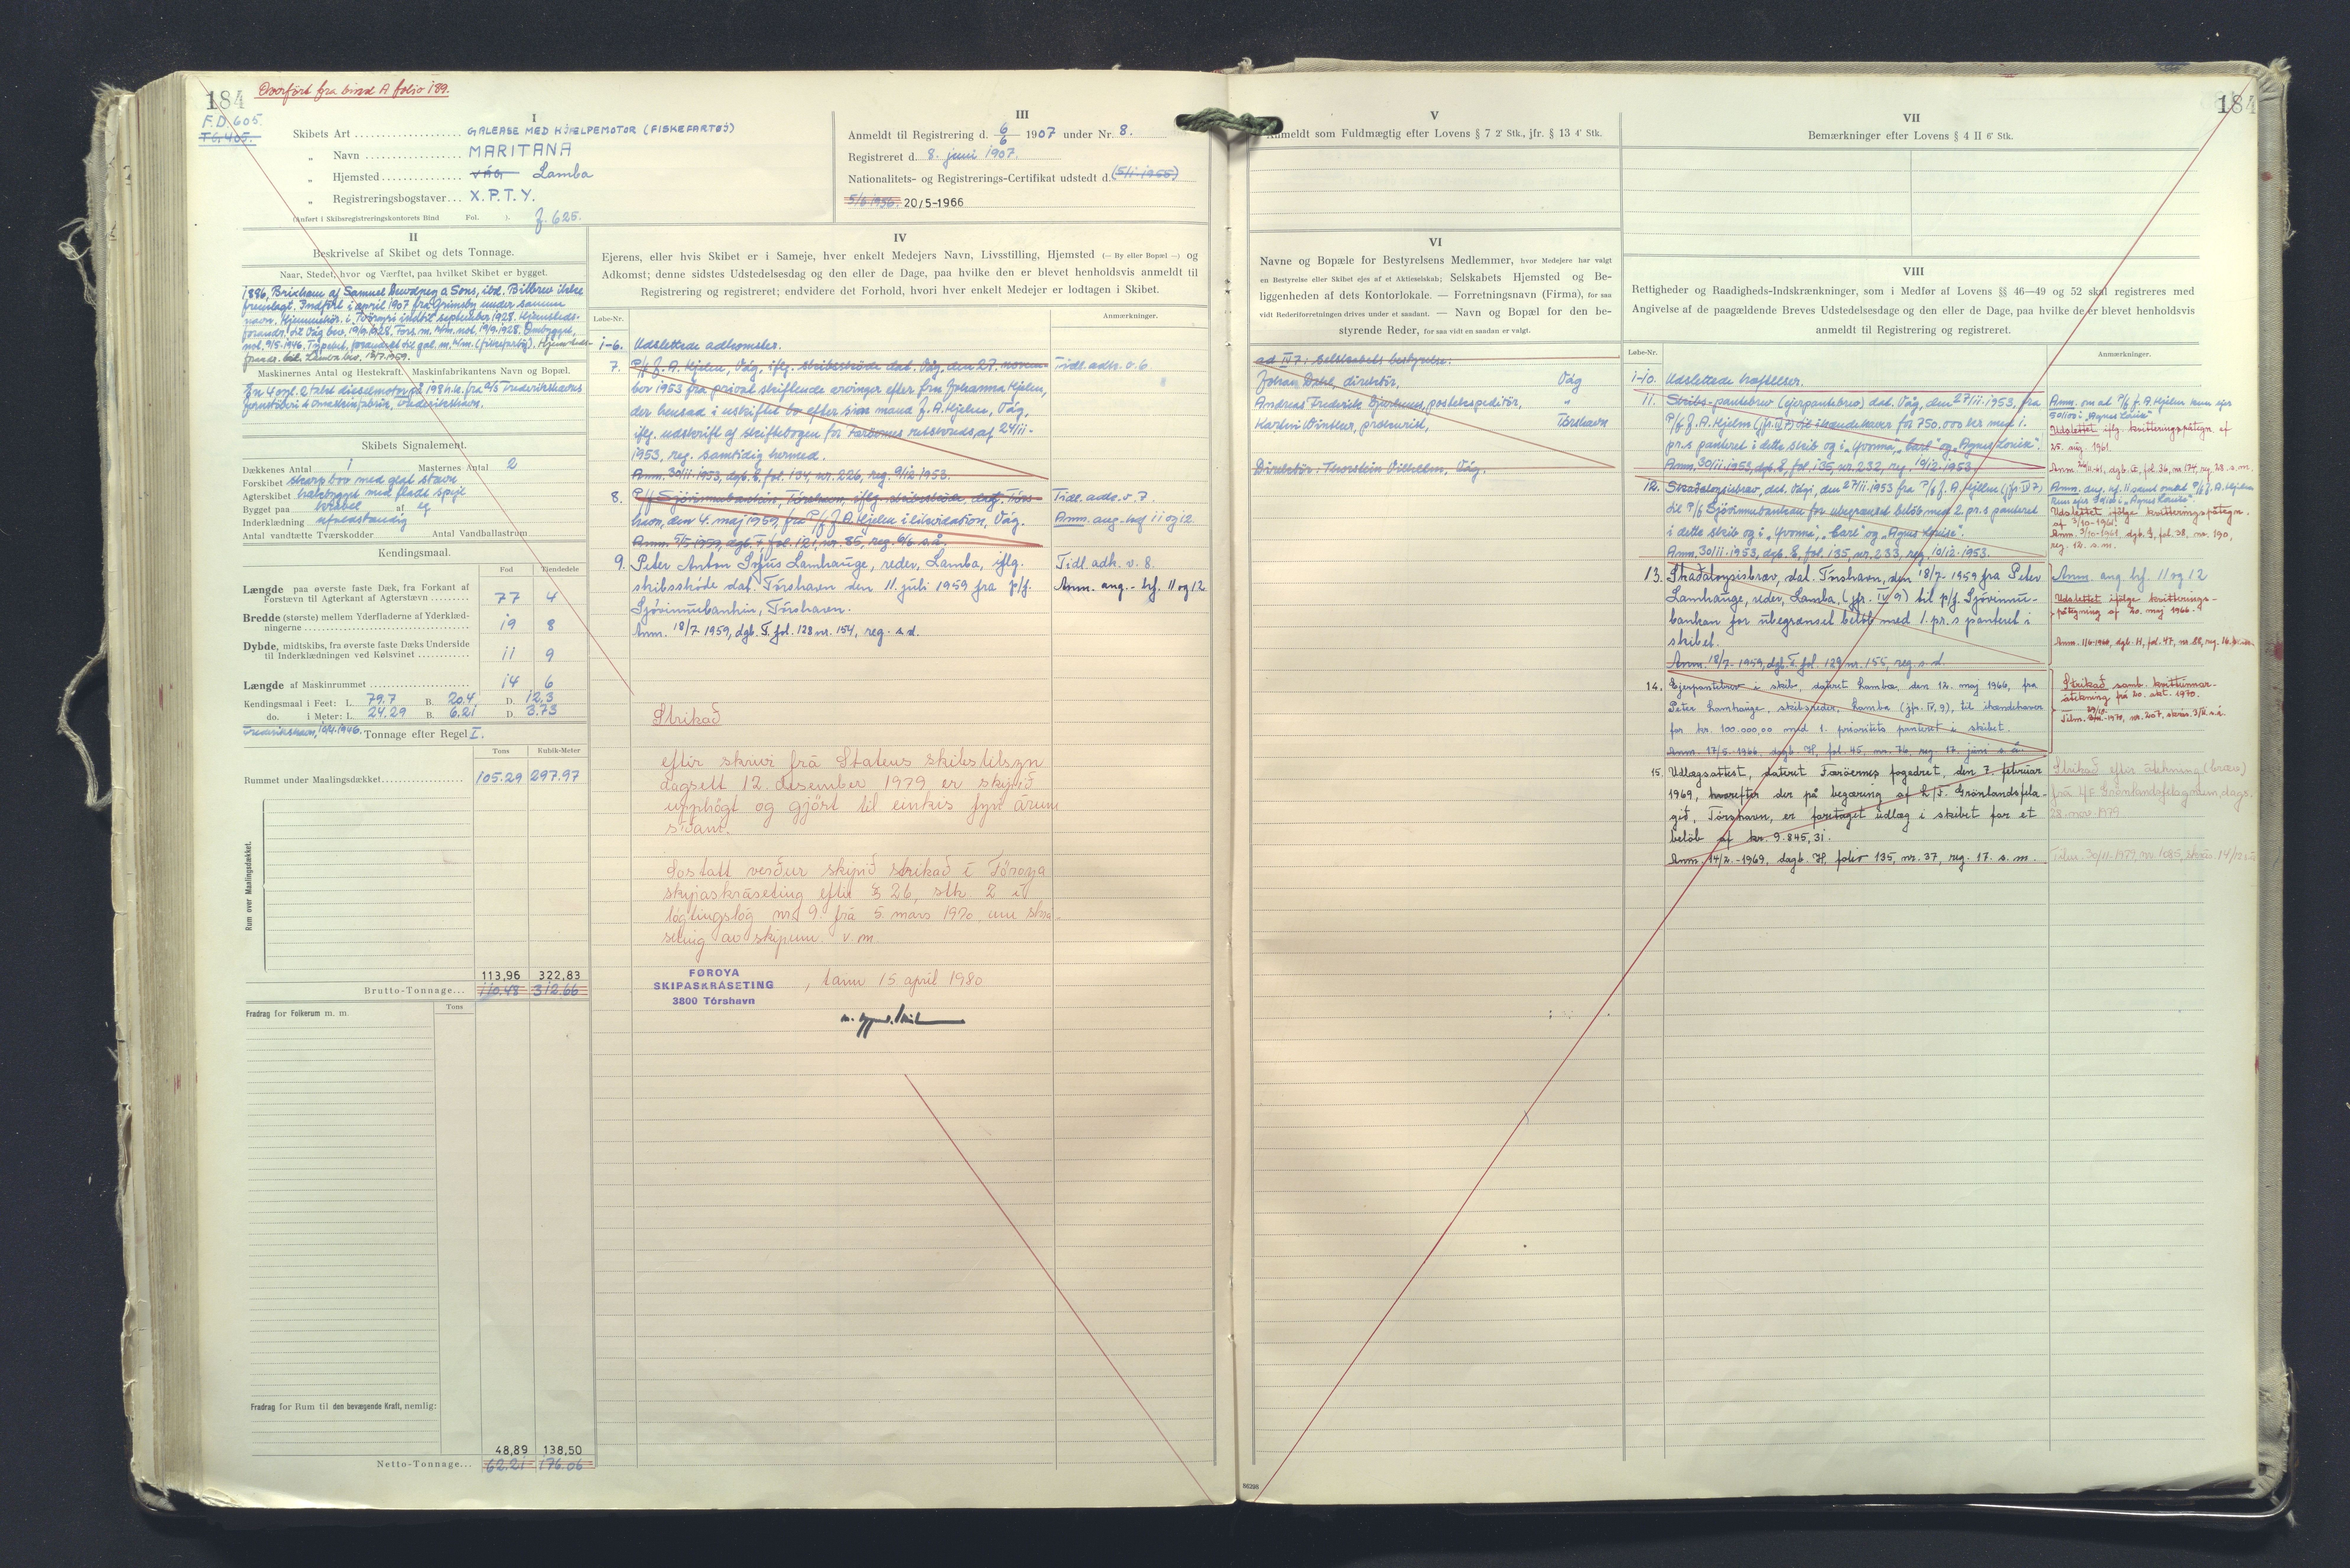 184
Overført fra bind A folio 189.
F.D. 605.
TG. 405.
I
Skibets Art GALEASE MED HJÆLPEMOTOR (FISKEFARTØJ)
„ Navn MARITANA
„ Hjemsted VÁG Lamba
„ Registreringsbogstaver X.P.T.Y.
(Anført i Skibsregistreringskontorets Bind Fol. ). f. 625.
III
Anmeldt til Registrering d. 6/6 1907 under Nr. 8.
Registreret d. 8. juni 1907.
Nationalitets- og Registrerings-Certifikat udstedt d.
20/5-1966
II
Beskrivelse af Skibet og dets Tonnage.
Naar, Stedet, hvor og Værftet, paa hvilket Skibet er bygget.
1886, Brixham af Samuel & Sons, ibd. Bilbrev ikke
fremlagt. Indført i april 1907 fra Grimsby under samme
navn. Hjemmehør. i Tveraa indtil september 1928. Hjemsteds-
forandr. til Våg bev. 19/9 1928. Ombygget,
Maskinernes Antal og Hestekraft. Maskinfabrikantens Navn og Bopæl.
En 4 cyl. 2 takt dieselmotor på 198 h.k. fra A/S Frederikshavns
Jernstøberi & Maskinfabrik, Frederikshavn.
Skibets Signalement.
Dækkenes Antal 1 Masternes Antal 2
Forskibet skarp bov med glat stævn
Agterskibet hækbygget med fladt spejl
Bygget paa kravel af eg
Inderklædning ufuldstændig
Antal vandtætte Tværskodder Antal Vandballastrum
Kendingsmaal.
Fod Tiendedele
Længde paa øverste faste Dæk, fra Forkant af
Forstævn til Agterkant af Agterstævn 77 4
Bredde (største) mellem Yderfladerne af Yderklæd-
ningerne 19 8
Dybde, midtskibs, fra øverste faste Dæks Underside
til Inderklædningen ved Kølsvinet 11 9
Længde af Maskinrummet 14 6
Kendingsmaal i Feet: L. 79.7 B. 20.4 D. 12.3
do. i Meter: L. 24.29 B. 6.21 D. 3.73
Tonnage efter Regel I.
Tons Kubik-Meter
Rummet under Maalingsdækket 105.29 297.97
Rum over Maalingsdækket.
113,96 322,83
Brutto-Tonnage... 110.48 312.66
Fradrag for Folkerum m. m.
Tons
Fradrag for Rum til den bevægende Kraft, nemlig:
48,89 138,50
Netto-Tonnage... 62.21 176.06
IV
Ejerens, eller hvis Skibet er i Sameje, hver enkelt Medejers Navn, Livsstilling, Hjemsted (— By eller Bopæl —) og
Adkomst; denne sidstes Udstedelsesdag og den eller de Dage, paa hvilke den er blevet henholdsvis anmeldt til
Registrering og registreret; endvidere det Forhold, hvori hver enkelt Medejer er lodtagen i Skibet.
Løbe-Nr. Anmærkninger.
1-6. Udslettede adkomster.
7. P/f J. A. Kjølen, Våg, iflg. skibsskøde dat. Våg, den 27. novem- Tidl. adk. v. 6.
ber 1953 fra privat skiftende arvinger efter fru Johanna Kjølen,
der hensad i uskiftet bo efter sin mand J. A. Kjølen, Våg,
iflg. udskrift af skiftebogen for Færøernes retskreds, af 24/11-
1953, reg. samtidig hermed.
Anm. 30/11 1953, dgb. E, fol. 134, nr. 226, reg. 9/12 1953.
8. P/f Sjóvinnubankin, Tórshavn, iflg. skibsskøde, dat. Tórs- Tidl. adk. v. 7.
havn, den 4. maj 1959, fra P/f J. A. Kjølen i likvidation, Våg. Anm. ang. hæf 11 og 12.
Anm. 5/5 1959, dgb. F, fol. 121, nr. 85, reg. 6/6 s.å.
9. Peter Anton Sigus Lamhauge, reder, Lamba, iflg. Tidl. adk. v. 8.
skibsskøde dat. Tórshavn den 11. júli 1959 fra p/f. Anm. ang. hf. 11 og 12
Sjóvinnubankin, Tórshavn.
Anm. 18/7 1959, dgb. F. fol. 128 nr. 154, reg. s.d.
Strikað
eftir skrivi frá Statens skibstilsyn
dagsett 12. desember 1979 er skipið
upphögt og gjört til einkis fyri árum
síðani.
Sostatt verður skipið strikað í Föroya
skipaskráseting eftir § 26, stk. 2 í
lögtingslóg nr. 9. frá 5. mars 1970, um skrá-
seting av skipum v. m.
FØROYA
SKIPASKRÁSETING
3800 Tórshavn
, tann 15. april 1980
184
V
Anmeldt som Fuldmægtig efter Lovens § 7 2' Stk., jfr. § 13 4' Stk.
VI
Navne og Bopæle for Bestyrelsens Medlemmer, hvor Medejere har valgt
en Bestyrelse eller Skibet ejes af et Aktieselskab; Selskabets Hjemsted og Be-
liggenheden af dets Kontorlokale. — Forretningsnavn (Firma), for saa
vidt Rederiforretningen drives under et saadant. — Navn og Bopæl for den be-
styrende Reder, for saa vidt en saadan er valgt.
ad IV 7: Selskabets bestyrelse:
Johan Dahl, direktør, Våg
Andreas Frederik , postekspeditør, „
Martin Winther, prokurist, Tórshavn
Direktør: Thorstein Vilhelm, Våg.
VII
Bemærkninger efter Lovens § 4 II 6' Stk.
VIII
Rettigheder og Raadigheds-Indskrænkninger, som i Medfør af Lovens §§ 46—49 og 52 skal registreres med
Angivelse af de paagældende Breves Udstedelsesdag og den eller de Dage, paa hvilke de er blevet henholdsvis
anmeldt til Registrering og registreret.
Løbe-Nr. Anmærkninger.
1-10. Udslettede hæftelser.
11. Skibs-pantebrev (ejerpantebrev) dat. Våg, den 27/11-1953, fra
P/f J. A. Kjølen (jfr. IV 7) til ihændehaver for 750.000 kr. med 1.
pr.s panteret i dette skib og i „Yvonne“, „Carl“ og „Agnes Louise“.
Anm. 30/11-1953, dgb. E, fol. 135, nr. 232, reg. 10/12-1953.
Anm. om at P/f J. A. Kjølen kun ejer
50/100 i „Agnes Louise“
Udslettet iflg. kvitteringspåtegn. af
25. aug. 1961.
12. Skaðaloysisbrev, dat. Vági, den 27/11-1953 fra P/f J. A. Kjølen (jfr. IV 7)
til P/f Sjóvinnubankan for ubegrænset beløb med 2 pr.s panteret
i dette skib og i „Yvonne“, „Carl“ og „Agnes Louise“.
Anm. 30/11-1953, dgb. E, fol. 135, nr. 233, reg. 10/12-1953.
Udslettet ifølge kvitteringspåtegn.
af 3/10-1961.
Anm. 3/10-1961, dgb. G, fol. 38, nr. 190,
reg. 12. s.m.
13. Skaðaloysisbrev, dat. Tórshavn, den 18/7-1959 fra Peter
Lamhauge, reder, Lamba, (jfr. IV 9) til p/f. Sjóvinnu-
bankan for ubegrænset beløb med 1. pr. s panteret i
skibet.
Anm. 18/7-1959, dgb. F. fol. 129 nr. 155, reg. s.d.
Anm. ang. hf. 11 og 12
Udslettet ifølge kvitterings-
påtegning af 20. maj 1966.
14. Ejerpantebrev i skib, dateret Lamba, den 12. maj 1966, fra
Peter Lamhauge, skibsreder, Lamba (jfr. IV, 9), til ihændehaver
for kr. 100.000,00 med 1. prioritets panteret i skibet.
Anm. 17/5-1966, dagb. H, fol. 45, nr. 76, reg. 17. júni s.á.
Strikað samb. kvittunnar-
áteikning frá 20. okt. 1970.
15. Udlægsattest, dateret Færöernes fogedret, den 7. februar
1969, hvorefter der på begæring af L/F. Grønlandsfela-
gið, Tórshavn, er foretaget udlæg i skibet for et
beløb af kr. 9.845,31.
Anm. 14/2.-1969, dagb. H, folio 135, nr. 37, reg. 17. s.m.
Strikað eftir áteikning (brev)
frá L/F Grønlandsfelagnum, dags.
28. nov. 1979.